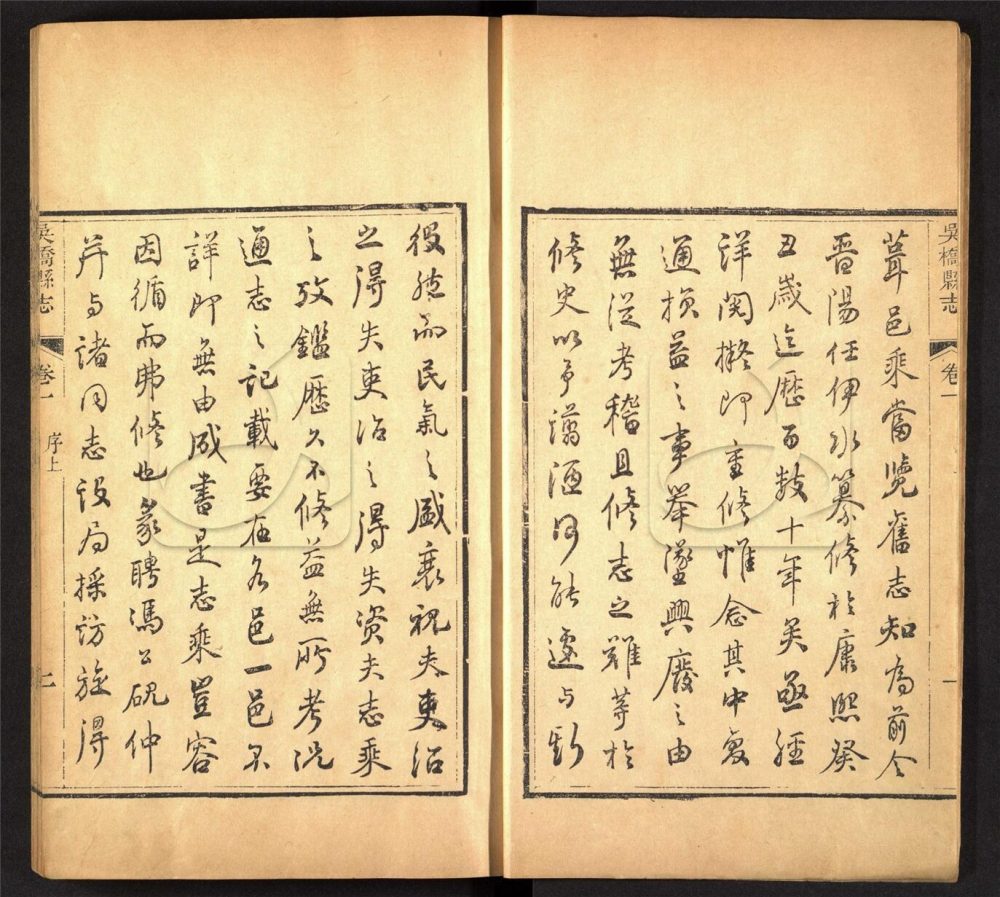 吳橋縣志
卷一
一
葺邑乘嘗覽舊志知為前令
晋陽任伊水纂修於康熙癸
丑歲迄歷百數十年矣亟經
詳閱擬即重修惟念其中變
通損益之事舉墜興廢之由
無從考稽且修志之難等於
修史以予譾陋何能遽与斯
役然而民氣之盛衰視夫吏治
之得失吏治之得失資夫志乘
之攷鑑歷久不修益無所考況
通志之記載要在各邑一邑不
詳即無由成書是志乘豈容
因循而弗修也爰聘馮公硯仲
并与諸同志設局採訪旋得
吳橋縣志
卷一
序上
二